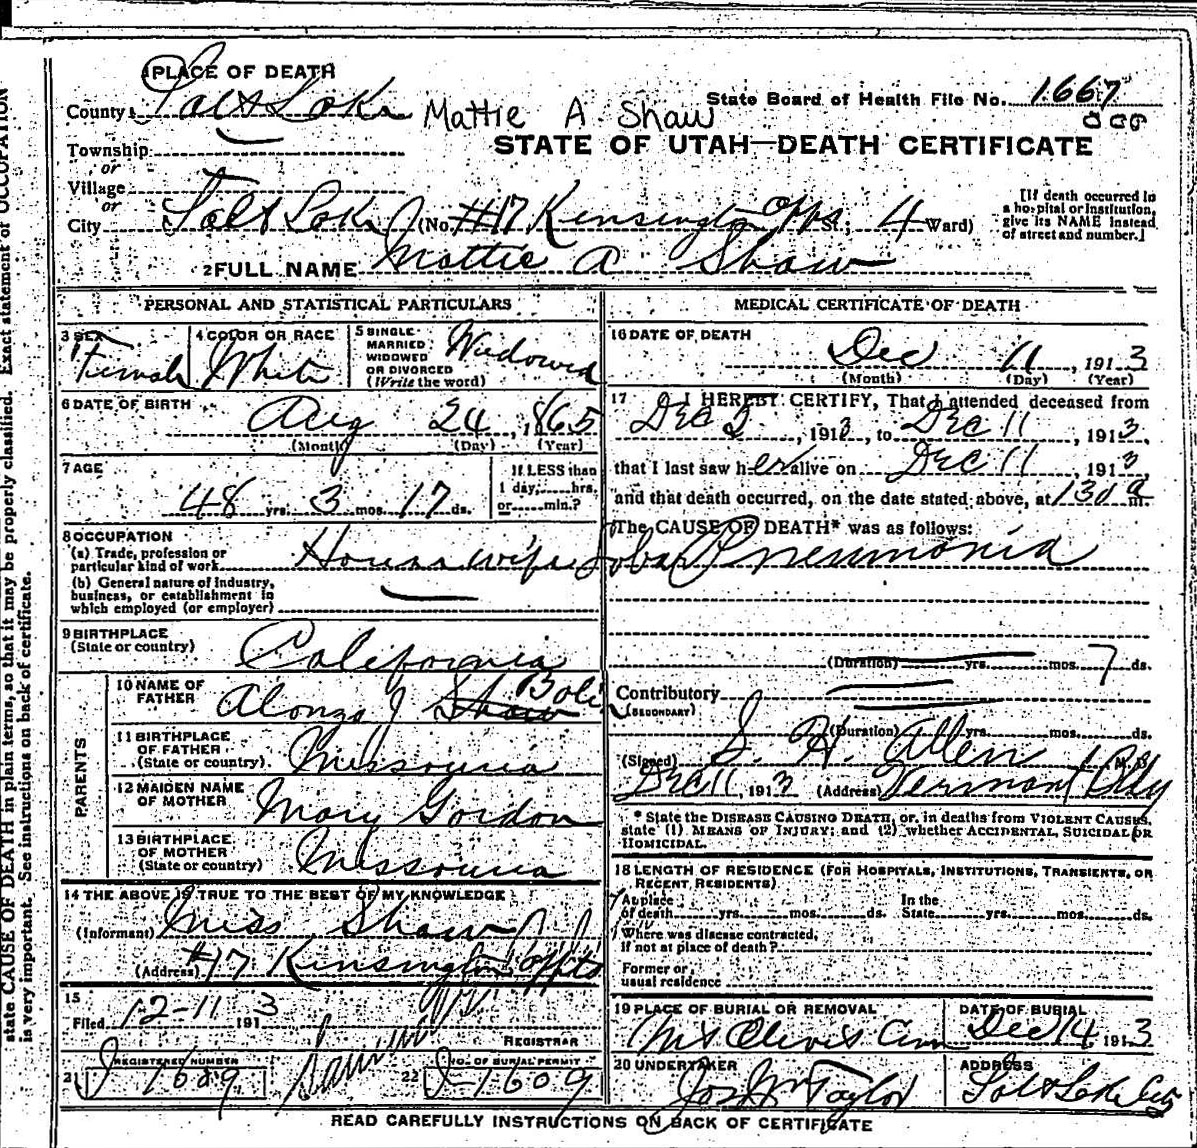 1 PLACE OF DEATH
County Salt Lake Mattie A. Shaw
State Board of Health File No. 1667
STATE OF UTAH—DEATH CERTIFICATE
Township
or
Village
or
City Salt Lake (No. #17 Kensington Apts St.; 4 Ward)
[If death occurred in
a hospital or institution,
give its NAME instead
of street and number.]
2 FULL NAME Mattie A Shaw
PERSONAL AND STATISTICAL PARTICULARS
3 SEX Female
4 COLOR OR RACE White
5 SINGLE
MARRIED
WIDOWED
OR DIVORCED
(Write the word) Widowed
6 DATE OF BIRTH
Aug 24, 1865
(Month) (Day) (Year)
7 AGE
48 yrs. 3 mos. 17 ds.
If LESS than
1 day, hrs.
or min.?
8 OCCUPATION
(a) Trade, profession or
particular kind of work Housewife
(b) General nature of Industry,
business, or establishment in
which employed (or employer)
9 BIRTHPLACE
(State or country) California
PARENTS
10 NAME OF
FATHER Alonzo J Shaw
11 BIRTHPLACE
OF FATHER
(State or country) Missouria
12 MAIDEN NAME
OF MOTHER Mary Gordon
13 BIRTHPLACE
OF MOTHER
(State or country) Missouria
14 THE ABOVE IS TRUE TO THE BEST OF MY KNOWLEDGE
(Informant) Miss Shaw
(Address) #17 Kensington Appts
15
Filed 12-11 1913
REGISTRAR
REGISTERED NUMBER
21 J 1609
NO. OF BURIAL PERMIT
22 J-1609
MEDICAL CERTIFICATE OF DEATH
16 DATE OF DEATH
Dec 11, 1913
(Month) (Day) (Year)
17 I HEREBY CERTIFY, That I attended deceased from
Dec 5, 1913, to Dec 11, 1913,
that I last saw her alive on Dec 11, 1913,
and that death occurred, on the date stated above, at 130 a m.
The CAUSE OF DEATH* was as follows:
Lobar Pneumonia
(Duration) yrs. mos. 7 ds.
Contributory
(SECONDARY)
(Duration) yrs. mos. ds.
(Signed) S. H. Allen, M. D.
Dec 11, 1913 (Address) Vermont Bldg
* State the DISEASE CAUSING DEATH, or, in deaths from VIOLENT CAUSES,
state (1) MEANS OF INJURY; and (2) whether ACCIDENTAL, SUICIDAL OR
HOMICIDAL.
18 LENGTH OF RESIDENCE (FOR HOSPITALS, INSTITUTIONS, TRANSIENTS, OR
RECENT RESIDENTS)
At place
of death yrs. mos. ds.
In the
State yrs. mos. ds.
Where was disease contracted,
if not at place of death?
Former or
usual residence
19 PLACE OF BURIAL OR REMOVAL
Mt Olivis Cem
DATE OF BURIAL
Dec 14 1913
20 UNDERTAKER
Jos Wm Taylor
ADDRESS
Salt Lake City
READ CAREFULLY INSTRUCTIONS ON BACK OF CERTIFICATE
state CAUSE OF DEATH in plain terms, so that it may be properly classified. Exact statement of OCCUPATION
is very important. See instructions on back of certificate.